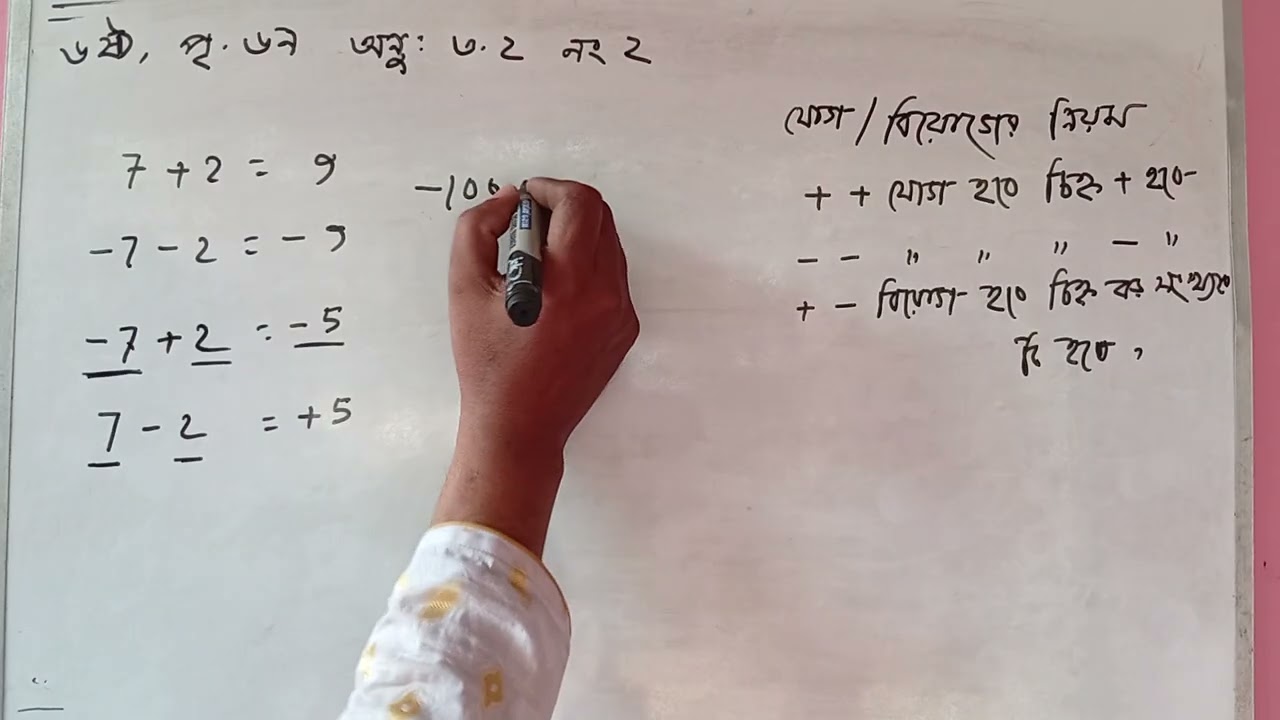 ৬ষ্ঠ, পৃ. ৬৭ অনু: ৩.২ নং ২
7 + 2 = 9
-7 - 2 = - 9
-7 + 2 = - 5
7 - 2 = + 5
-10
যোগ / বিয়োগের নিয়ম
+ + যোগ হবে চিহ্ন + হবে
- - " " " - "
+ - বিয়োগ হবে চিহ্ন বড় সংখ্যার
টি হবে ,